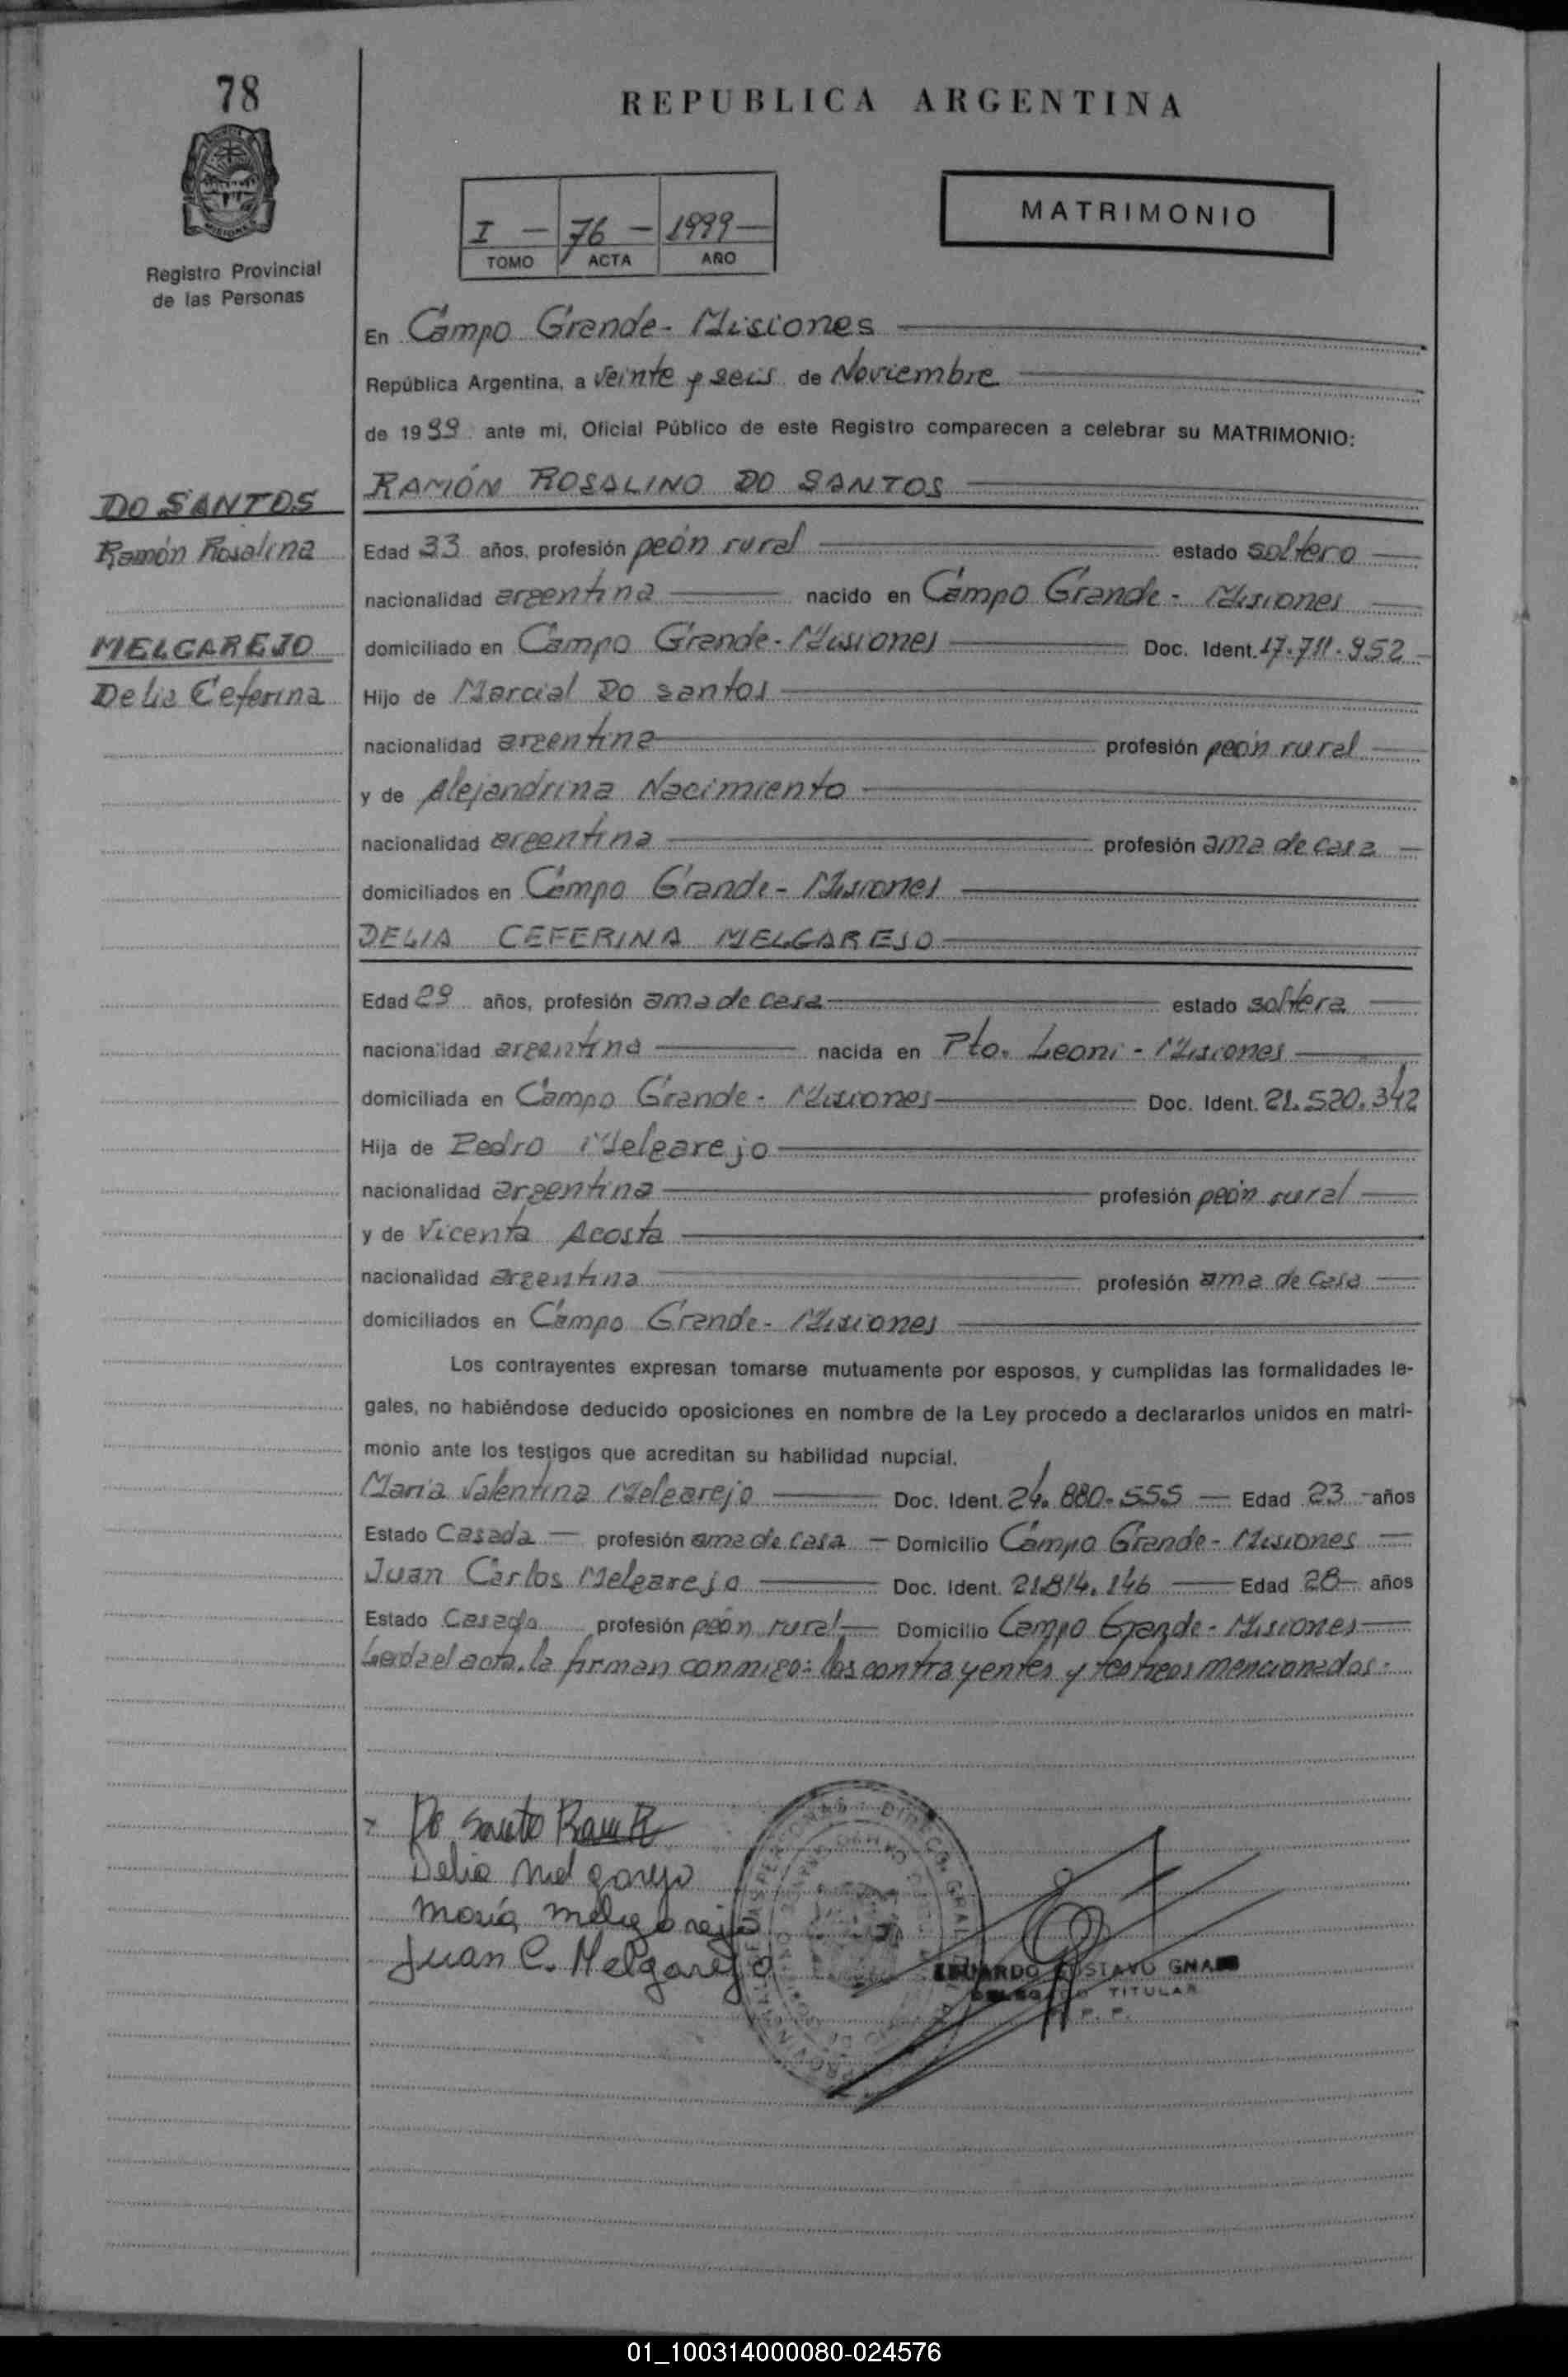 78
REPUBLICA ARGENTINA
Registro Provincial
de las Personas
I - 76 - 1999
TOMO ACTA AÑO
MATRIMONIO
En Campo Grande - Misiones
República Argentina, a veinte y seis de Noviembre
de 1999 ante mi, Oficial Público de este Registro comparecen a celebrar su MATRIMONIO:
DO SANTOS
Ramón Rosalino
MELGAREJO
Delia Ceferina
RAMÓN ROSALINO DO SANTOS
Edad 33 años, profesión peón rural estado soltero
nacionalidad argentina nacido en Campo Grande - Misiones
domiciliado en Campo Grande - Misiones Doc. Ident. 17.711.952
Hijo de Marcial Do santos
nacionalidad argentina profesión peón rural
y de Alejandrina Nacimiento
nacionalidad argentina profesión ama de casa
domiciliados en Campo Grande - Misiones
DELIA CEFERINA MELGAREJO
Edad 29 años, profesión ama de casa estado soltera
nacionalidad argentina nacida en Pto. Leoni - Misiones
domiciliada en Campo Grande - Misiones Doc. Ident. 21.520.342
Hija de Pedro Melgarejo
nacionalidad argentina profesión peón rural
y de Vicenta Acosta
nacionalidad argentina profesión ama de casa
domiciliados en Campo Grande - Misiones
Los contrayentes expresan tomarse mutuamente por esposos, y cumplidas las formalidades le-
gales, no habiéndose deducido oposiciones en nombre de la Ley procedo a declararlos unidos en matri-
monio ante los testigos que acreditan su habilidad nupcial.
María Valentina Melgarejo Doc. Ident. 24.880.555 Edad 23 años
Estado Casada profesión ama de casa Domicilio Campo Grande - Misiones
Juan Carlos Melgarejo Doc. Ident. 21.814.146 Edad 28 años
Estado Casado profesión peón rural Domicilio Campo Grande - Misiones
Leida el acta, la firman conmigo: los contrayentes y testigos mencionados.-
Do santo Ramon R
Delia Melgarejo
María Melgarejo
Juan C. Melgarejo
EDUARDO GUSTAVO
DELEGADO TITULAR
01_100314000080-024576